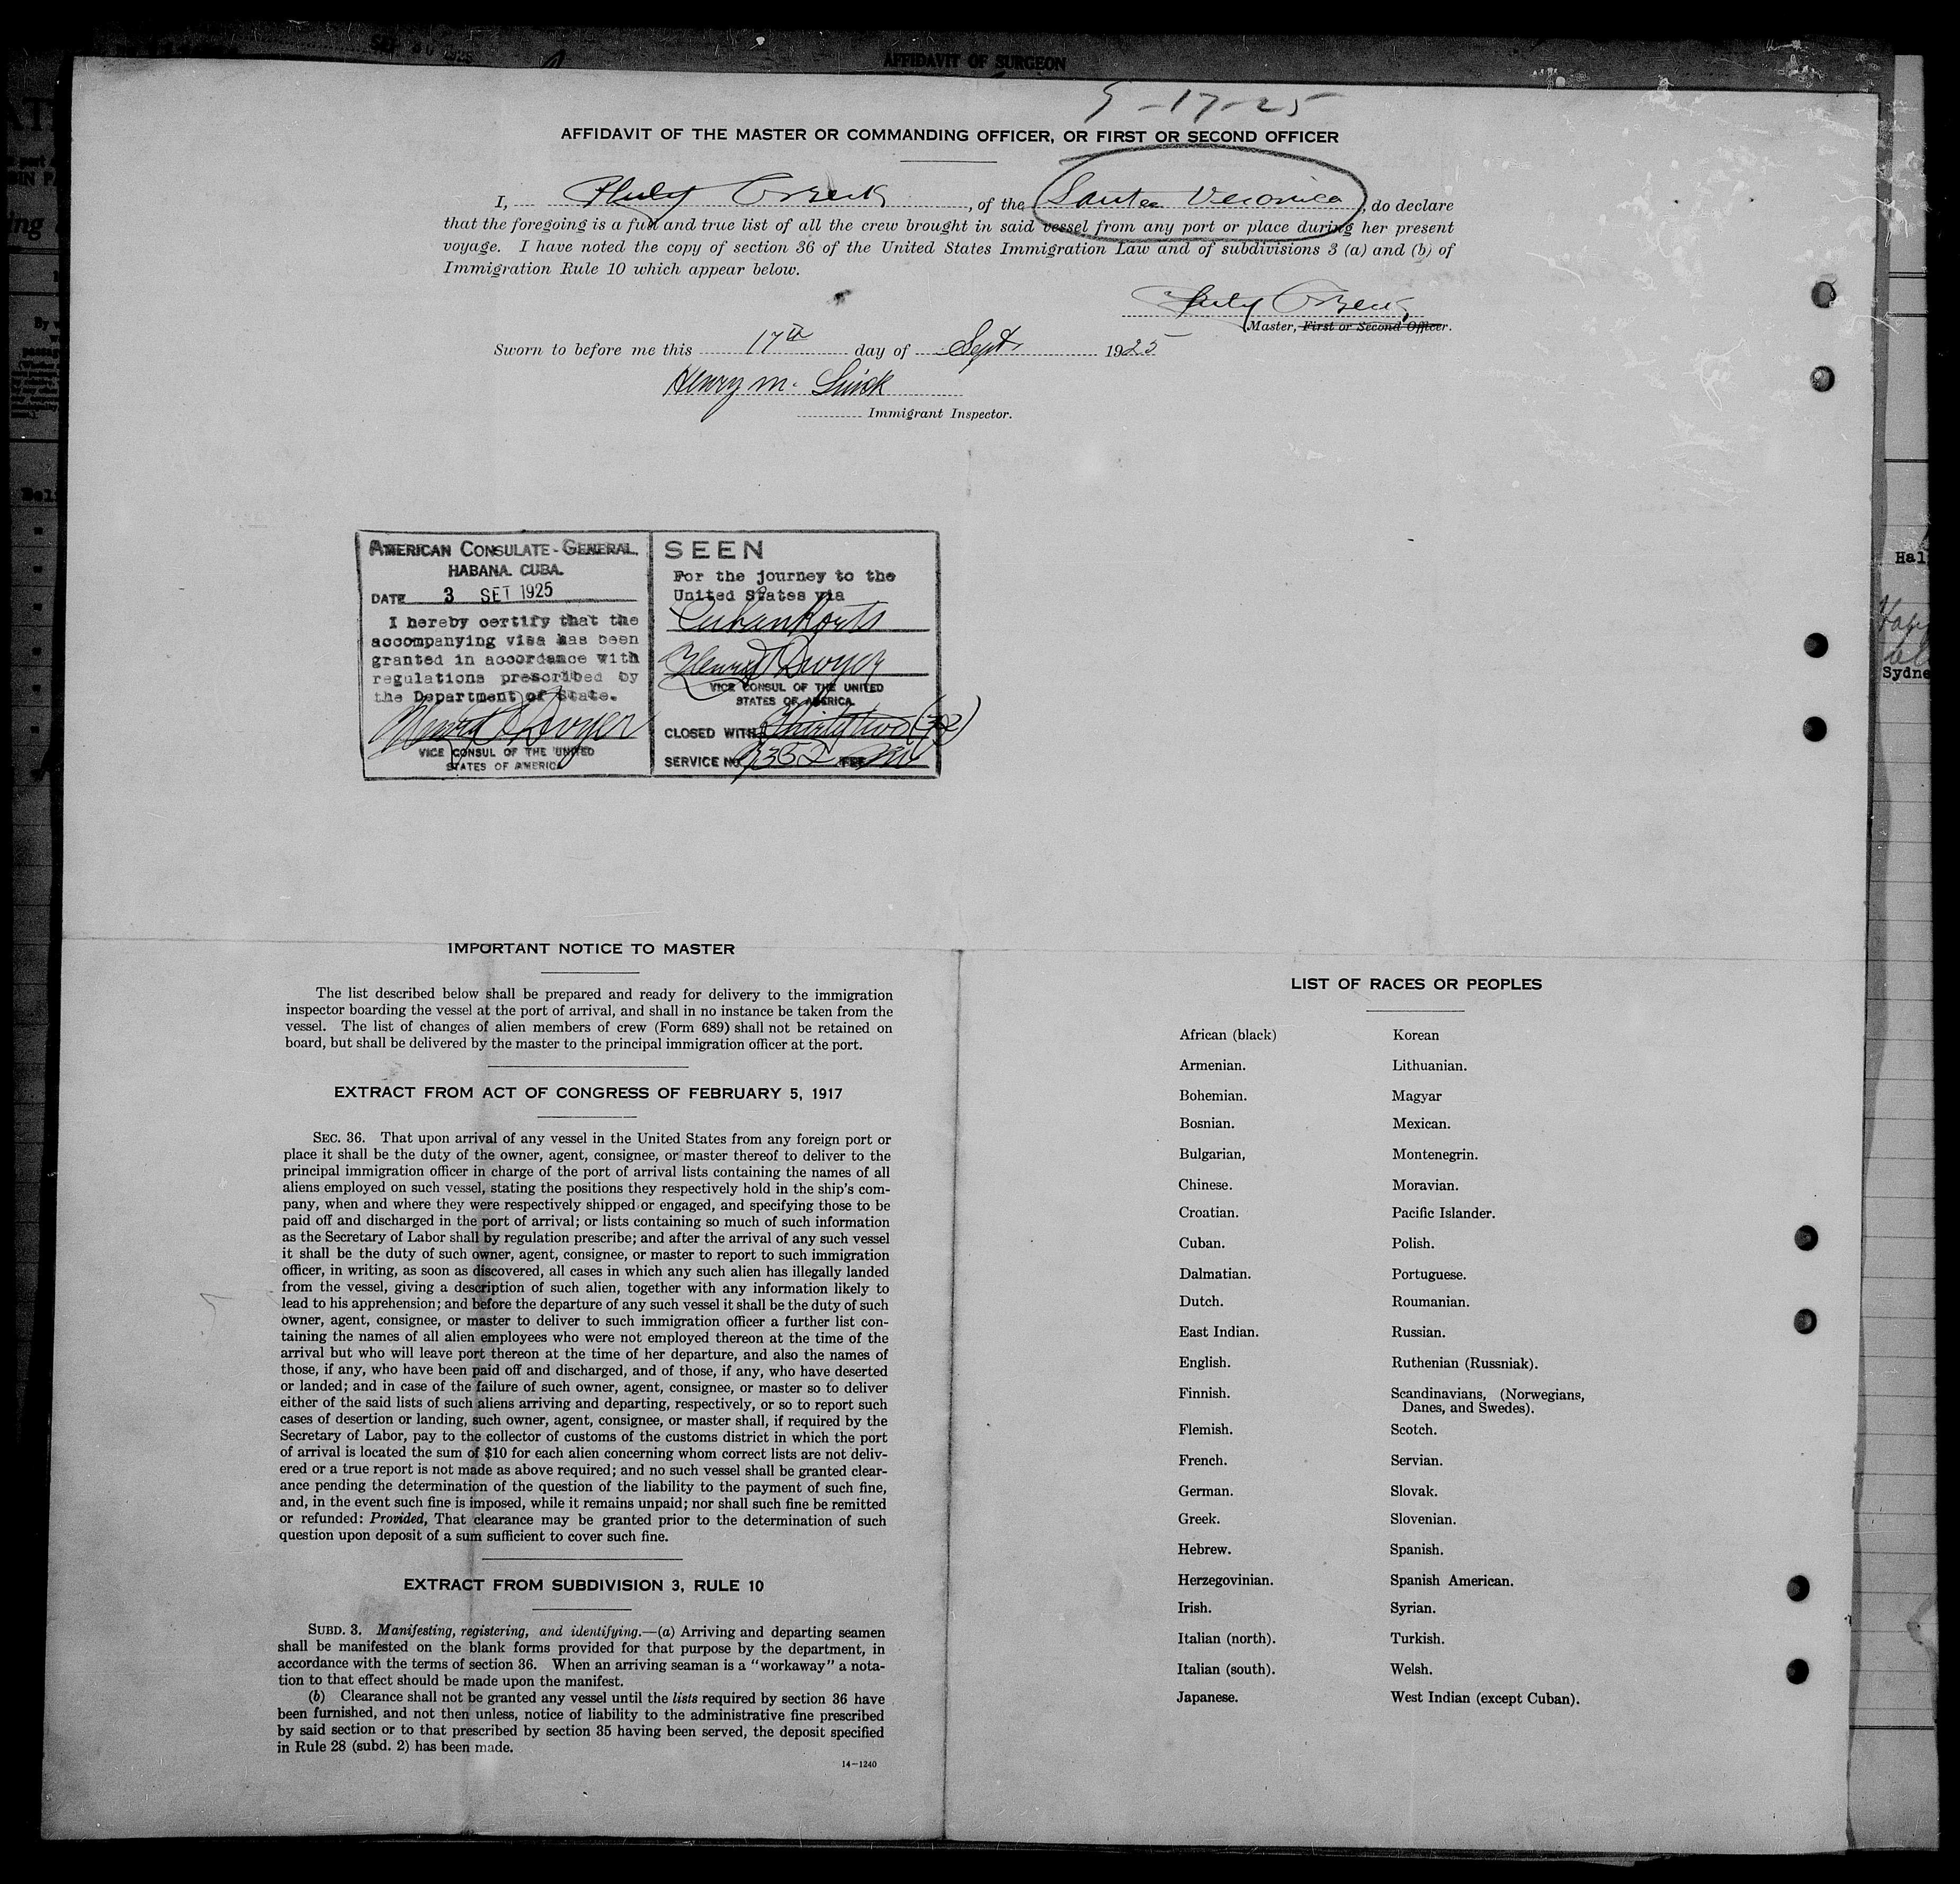 AFFIDAVIT OF SURGEON
9-17-25
AFFIDAVIT OF THE MASTER OR COMMANDING OFFICER, OR FIRST OR SECOND OFFICER
I, , of the Santa Veronica, do declare
that the foregoing is a full and true list of all the crew brought in said vessel from any port or place during her present
voyage. I have noted the copy of section 36 of the United States Immigration Law and of subdivisions 3 (a) and (b) of
Immigration Rule 10 which appear below.
Master, First or Second Officer.
Sworn to before me this 17th day of Sept. 1925
Henry M.
Immigrant Inspector.
AMERICAN CONSULATE-GENERAL.
HABANA. CUBA.
DATE 3 SET 1925
I hereby certify that the
accompanying visa has been
granted in accordance with
regulations prescribed by
the Department of State.
VICE CONSUL OF THE UNITED
STATES OF AMERICA
SEEN
For the journey to the
United States via
Cuban Ports
Henry Dwyer
VICE CONSUL OF THE UNITED
STATES OF AMERICA
CLOSED WITH Thirty two (32)
SERVICE NO. FEE
IMPORTANT NOTICE TO MASTER
The list described below shall be prepared and ready for delivery to the immigration
inspector boarding the vessel at the port of arrival, and shall in no instance be taken from the
vessel. The list of changes of alien members of crew (Form 689) shall not be retained on
board, but shall be delivered by the master to the principal immigration officer at the port.
EXTRACT FROM ACT OF CONGRESS OF FEBRUARY 5, 1917
SEC. 36. That upon arrival of any vessel in the United States from any foreign port or
place it shall be the duty of the owner, agent, consignee, or master thereof to deliver to the
principal immigration officer in charge of the port of arrival lists containing the names of all
aliens employed on such vessel, stating the positions they respectively hold in the ship's com-
pany, when and where they were respectively shipped or engaged, and specifying those to be
paid off and discharged in the port of arrival; or lists containing so much of such information
as the Secretary of Labor shall by regulation prescribe; and after the arrival of any such vessel
it shall be the duty of such owner, agent, consignee, or master to report to such immigration
officer, in writing, as soon as discovered, all cases in which any such alien has illegally landed
from the vessel, giving a description of such alien, together with any information likely to
lead to his apprehension; and before the departure of any such vessel it shall be the duty of such
owner, agent, consignee, or master to deliver to such immigration officer a further list con-
taining the names of all alien employees who were not employed thereon at the time of the
arrival but who will leave port thereon at the time of her departure, and also the names of
those, if any, who have been paid off and discharged, and of those, if any, who have deserted
or landed; and in case of the failure of such owner, agent, consignee, or master so to deliver
either of the said lists of such aliens arriving and departing, respectively, or so to report such
cases of desertion or landing, such owner, agent, consignee, or master shall, if required by the
Secretary of Labor, pay to the collector of customs of the customs district in which the port
of arrival is located the sum of $10 for each alien concerning whom correct lists are not deliv-
ered or a true report is not made as above required; and no such vessel shall be granted clear-
ance pending the determination of the question of the liability to the payment of such fine,
and, in the event such fine is imposed, while it remains unpaid; nor shall such fine be remitted
or refunded: Provided, That clearance may be granted prior to the determination of such
question upon deposit of a sum sufficient to cover such fine.
EXTRACT FROM SUBDIVISION 3, RULE 10
SUBD. 3. Manifesting, registering, and identifying.—(a) Arriving and departing seamen
shall be manifested on the blank forms provided for that purpose by the department, in
accordance with the terms of section 36. When an arriving seaman is a "workaway" a nota-
tion to that effect should be made upon the manifest.
(b) Clearance shall not be granted any vessel until the lists required by section 36 have
been furnished, and not then unless, notice of liability to the administrative fine prescribed
by said section or to that prescribed by section 35 having been served, the deposit specified
in Rule 28 (subd. 2) has been made.
14—1240
LIST OF RACES OR PEOPLES
African (black) Korean
Armenian. Lithuanian.
Bohemian. Magyar
Bosnian. Mexican.
Bulgarian, Montenegrin.
Chinese. Moravian.
Croatian. Pacific Islander.
Cuban. Polish.
Dalmatian. Portuguese.
Dutch. Roumanian.
East Indian. Russian.
English. Ruthenian (Russniak).
Finnish. Scandinavians, (Norwegians,
Danes, and Swedes).
Flemish. Scotch.
French. Servian.
German. Slovak.
Greek. Slovenian.
Hebrew. Spanish.
Herzegovinian. Spanish American.
Irish. Syrian.
Italian (north). Turkish.
Italian (south). Welsh.
Japanese. West Indian (except Cuban).